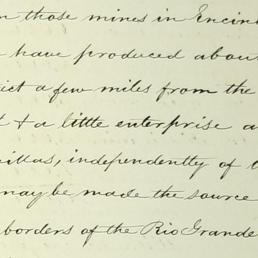 those mines in Encin
have produced about
ict a few miles from the
t & a little enterprise a
independently of t
may be made the source
borders of the Rio Grande